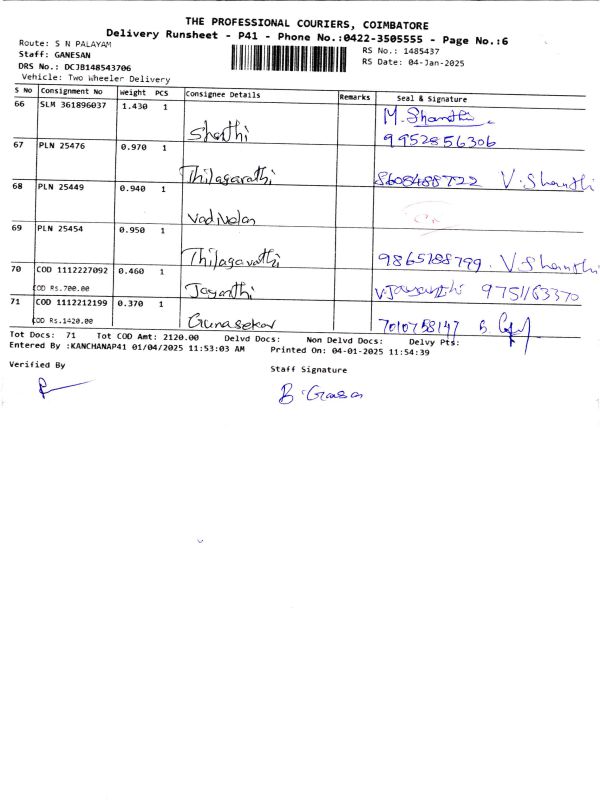 THE PROFESSIONAL COURIERS, COIMBATORE
Delivery Runsheet - P41 - Phone No.:0422-3505555 - Page No.:6
Route: S N PALAYAM
Staff: GANESAN
DRS No.: DCJB148543706
Vehicle: Two Wheeler Delivery
RS No.: 1485437
RS Date: 04-Jan-2025
S No Consignment No Weight PCS Consignee Details Remarks Seal & Signature
66 SLM 361896037 1.430 1 Shanthi M. Shanthi
9952856306
67 PLN 25476 0.970 1 Thilagavathi 8608488722 V. Shanthi
68 PLN 25449 0.940 1 Vadivelan
69 PLN 25454 0.950 1 Thilagavathi 9865188799. V Shanthi
70 COD 1112227092 0.460 1
COD RS.700.00 Jayanthi V.Jayanthi 9751163370
71 COD 1112212199 0.370 1
COD RS.1420.00 Gunasekar 7010758147
Tot Docs: 71 Tot COD Amt: 2120.00 Delvd Docs: Non Delvd Docs: Delvy Pts:
Entered By :KANCHANAP41 01/04/2025 11:53:03 AM Printed On: 04-01-2025 11:54:39
Verified By
Staff Signature